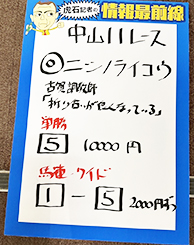 虎石記者の
情報最前線
中山11レース
◎ニシノライコウ
古賀調教師
「折り合いが
単勝
5 10000円
馬連・ワイド
1-5 2000円